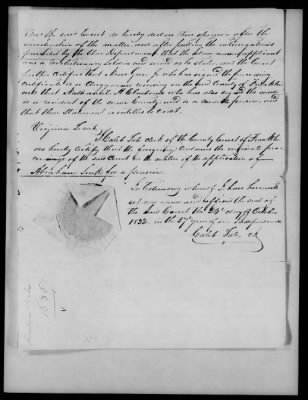 And the said Court do hereby declare their opinion after the
investigation of the matter, and after putting the interrogatories
prescribed by the War Department, that the above named applicant
was a Revolutionary Soldier and served as he states, and the Court
further certifies that Moses Greer, Jr. who has signed the preceding
certificate is a Clergyman residing in the said County of Franklin
and that who has also signed the same
is a resident of the same County, and is a credible person, and
that their Statement is entitled to credit.
Virginia To wit,
I Caleb Tate clerk of the County Court of Franklin
do hereby certify that the foregoing contains the original pro
ceedings of the said Court in the matter of the application of
Abraham for a pension
In Testimony whereof I have hereunto
set my name and affixed the seal of
the said Court this day of October
1832. in the 57th year of our independence
Caleb Tate, Ck